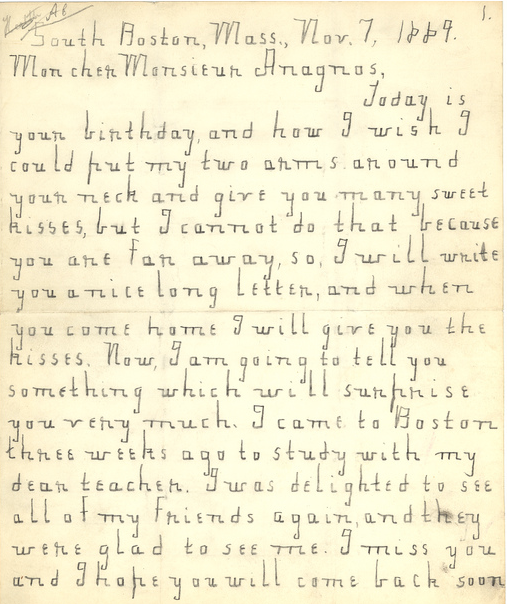 1.
South Boston, Mass., Nov. 7, 1889.
Mon cher Monsieur Anagnos,
Today is
your birthday, and how I wish I
could put my two arms around
your neck and give you many sweet
kisses, but I cannot do that because
you are far away, so, I will write
you a nice long letter, and when
you come home I will give you the
kisses. Now, I am going to tell you
something which will surprise
you very much. I came to Boston
three weeks ago to study with my
dear teacher. I was delighted to see
all of my friends again, and they
were glad to see me. I miss you
and I hope you will come back soon